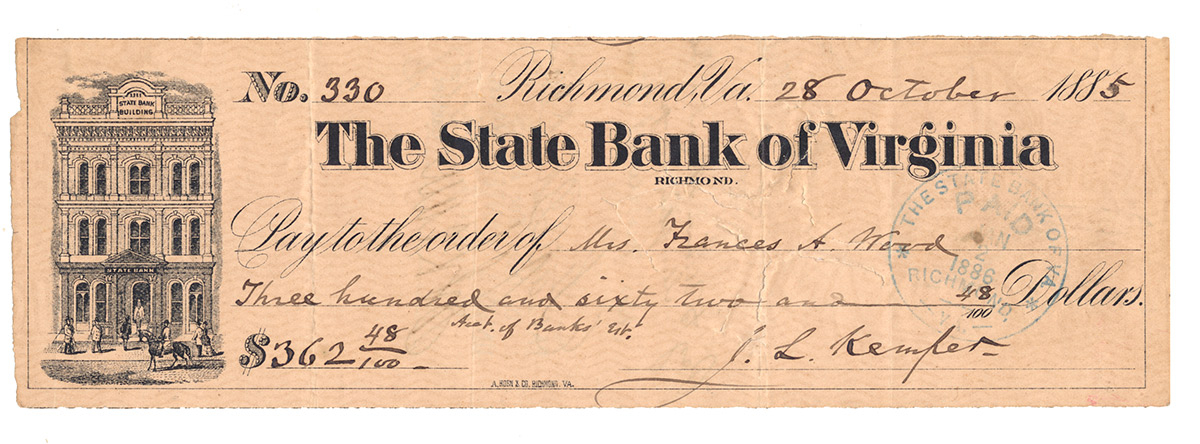 STATE BANK
BUILDING
STATE BANK
No. 330 Richmond, Va. 28 October 1885
The State Bank of Virginia
RICHMOND.
Pay to the order of Mrs. Frances A. Wood
Three hundred and sixty two and 48/100 Dollars.
Acct. of Banks' Est.
$362 48/100
J. L. Kemper
A. HOEN & CO. RICHMOND, VA.
THE STATE BANK OF VA
PAID
2
1886
RICHMOND,